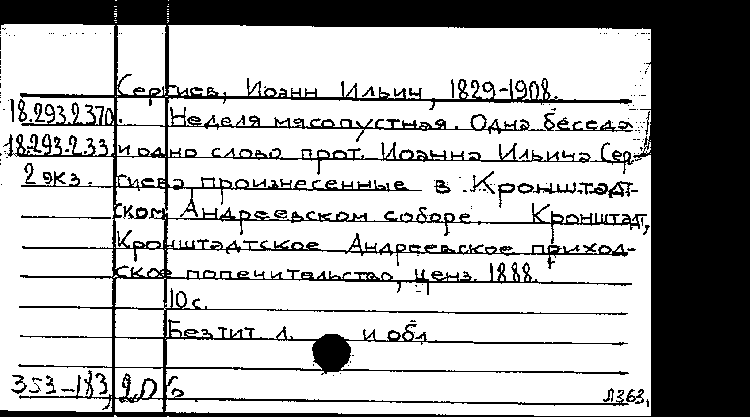 Сергиев, Иоанн Ильич, 1829-1908.
18.293.2.370. Неделя мясопустная. Одна беседа
18.293.2.33. и одно слово прот. Иоанна Ильича Сер-
2 экз. гиева, произнесенные в Кронштадт-
ском Андреевском соборе. Кронштадт,
Кронштадтское Андреевское приход-
ское попечительство, ценз. 1888.
10 с.
Без тит. л. и обл.
353-183,
Л363,